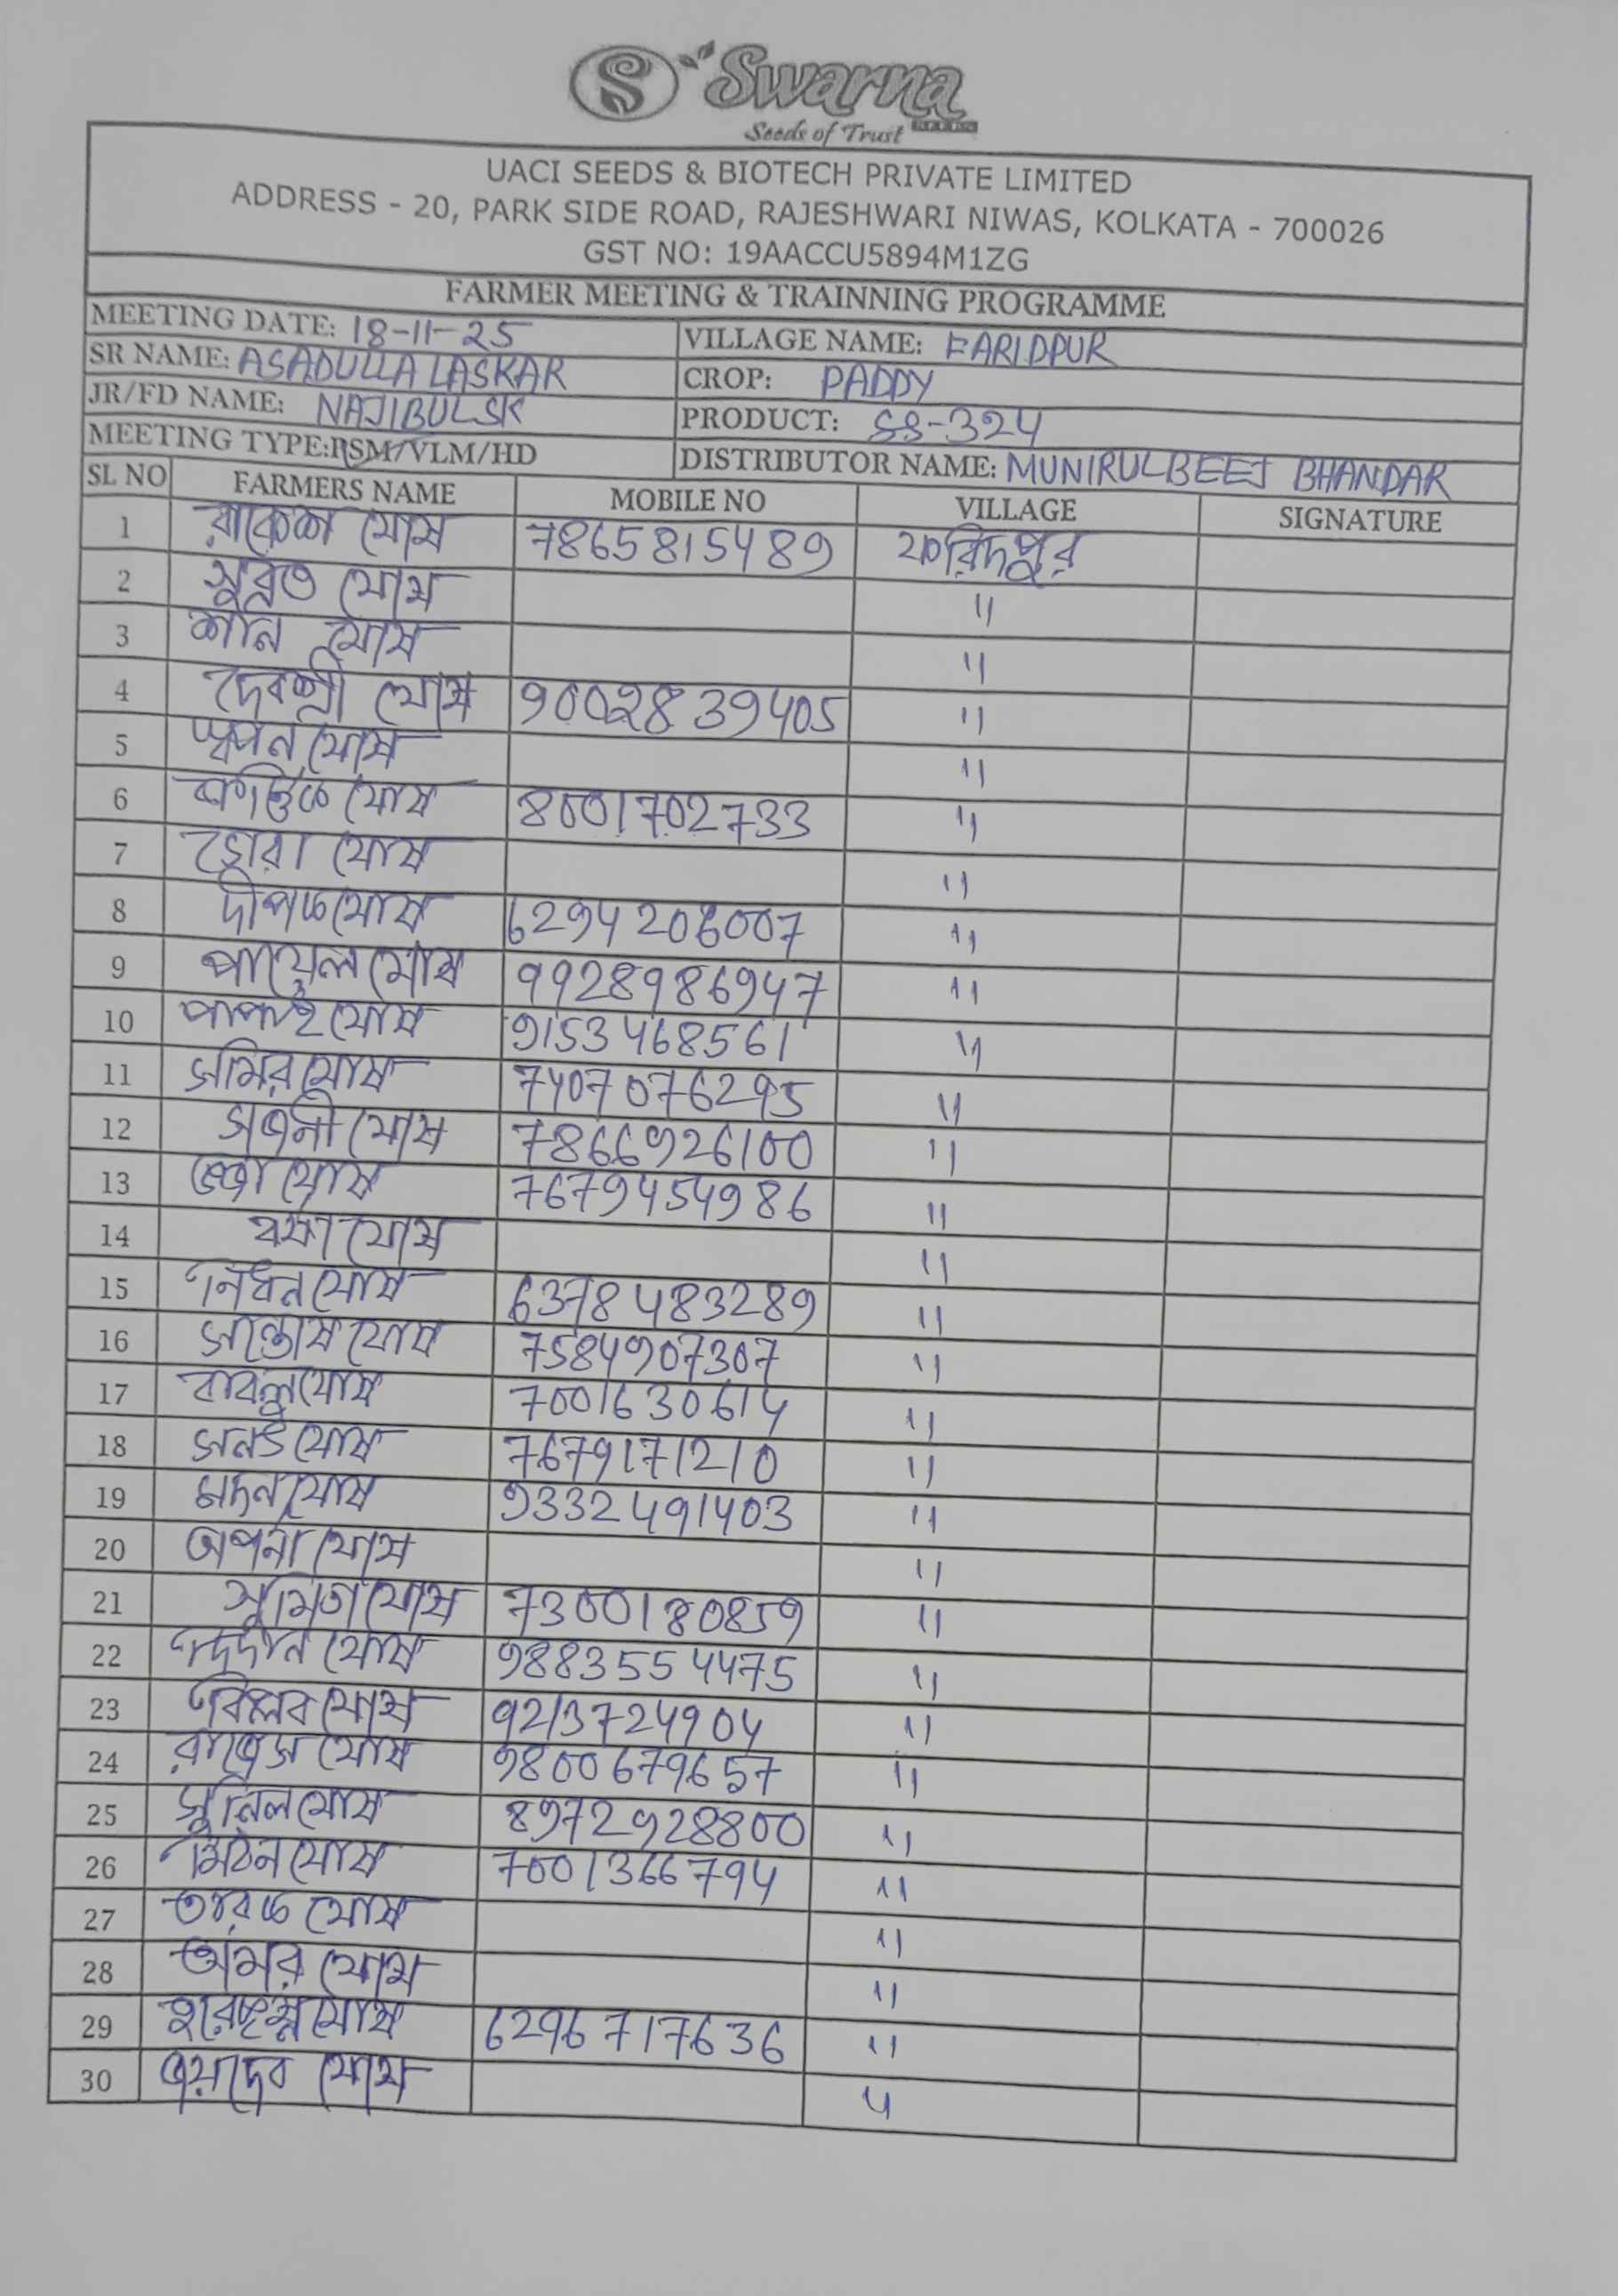 Swarna
SEEDS
Seeds of Trust
UACI SEEDS & BIOTECH PRIVATE LIMITED
ADDRESS - 20, PARK SIDE ROAD, RAJESHWARI NIWAS, KOLKATA - 700026
GST NO: 19AACCU5894M1ZG
FARMER MEETING & TRAINNING PROGRAMME
MEETING DATE: 18-11-25 VILLAGE NAME: FARIDPUR
SR NAME: ASADULLA LASKAR CROP: PADDY
JR/FD NAME: NAJIBUL SK PRODUCT: SS-324
MEETING TYPE:RSM/VLM/HD DISTRIBUTOR NAME: MUNIRUL BEEJ BHANDAR
SL NO FARMERS NAME MOBILE NO VILLAGE SIGNATURE
1 রাকেশ ঘোষ 7865815489 ফরিদপুর
2 সুব্রত ঘোষ "
3 শনি ঘোষ "
4 দেবশ্রী ঘোষ 9002839405 "
5 স্বপন ঘোষ "
6 কার্ত্তিক ঘোষ 8001702733 "
7 ঘোষ "
8 দীপক ঘোষ 6294206007 "
9 পায়েল ঘোষ 9928986947 "
10 পাপাই ঘোষ 9153468561 "
11 সমির ঘোষ 7407076295 "
12 সজনী ঘোষ 7866926100 "
13 ঘোষ 7679454986 "
14 ঘোষ "
15 নিধন ঘোষ 6378483289 "
16 সন্তোষ ঘোষ 7584907307 "
17 বাবলু ঘোষ 7001630614 "
18 সনৎ ঘোষ 7679171210 "
19 মদন ঘোষ 9332491403 "
20 অপর্না ঘোষ "
21 সুমিতা ঘোষ 7300180859 "
22 ঘোষ 9883554475 "
23 বিপ্লব ঘোষ 9213724904 "
24 রাজেস ঘোষ 9800679657 "
25 সুনিল ঘোষ 8972928800 "
26 মিঠন ঘোষ 7001366794 "
27 তারক ঘোষ "
28 অমর ঘোষ "
29 হরেকৃষ্ণ ঘোষ 6296717636 "
30 জয়দেব ঘোষ "